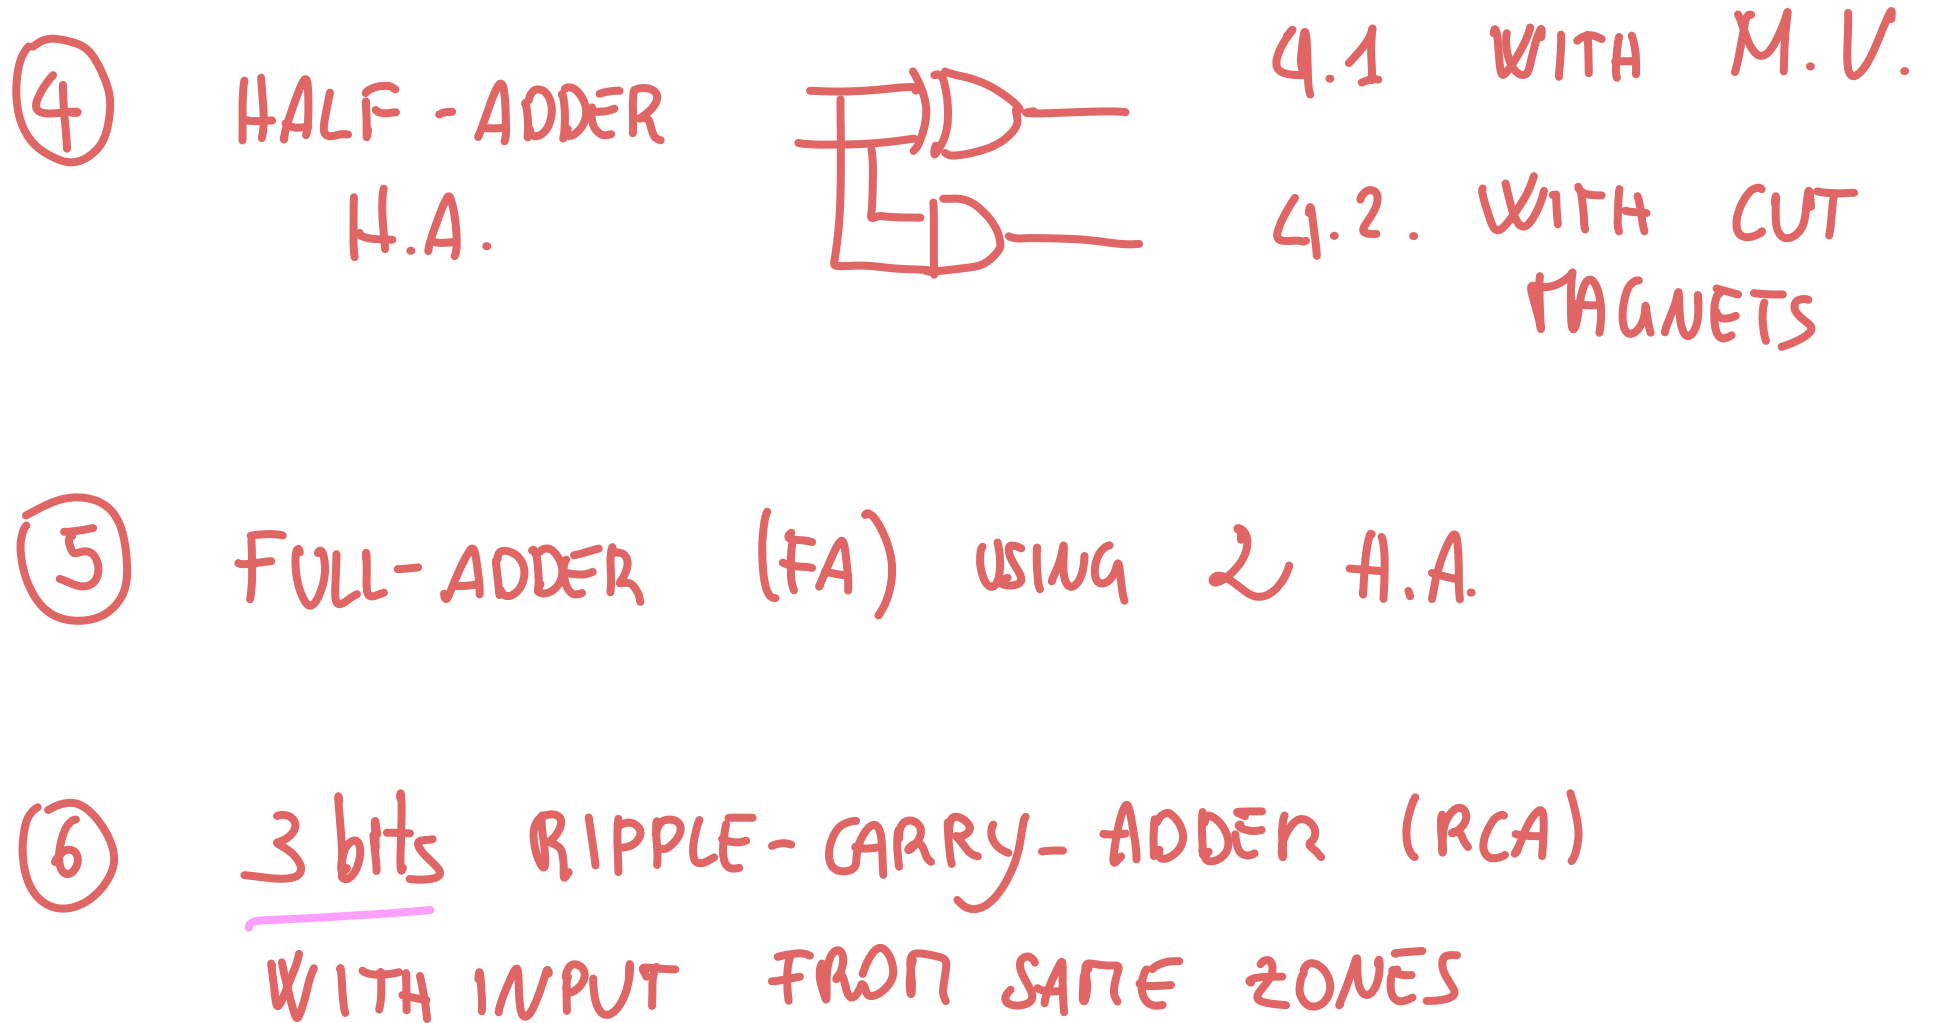 4 HALF-ADDER 4.1 WITH M.V.
H.A. 4.2. WITH CUT
MAGNETS
5 FULL-ADDER (FA) USING 2 H.A.
6 3 bits RIPPLE-CARRY-ADDER (RCA)
WITH INPUT FROM SAME ZONES